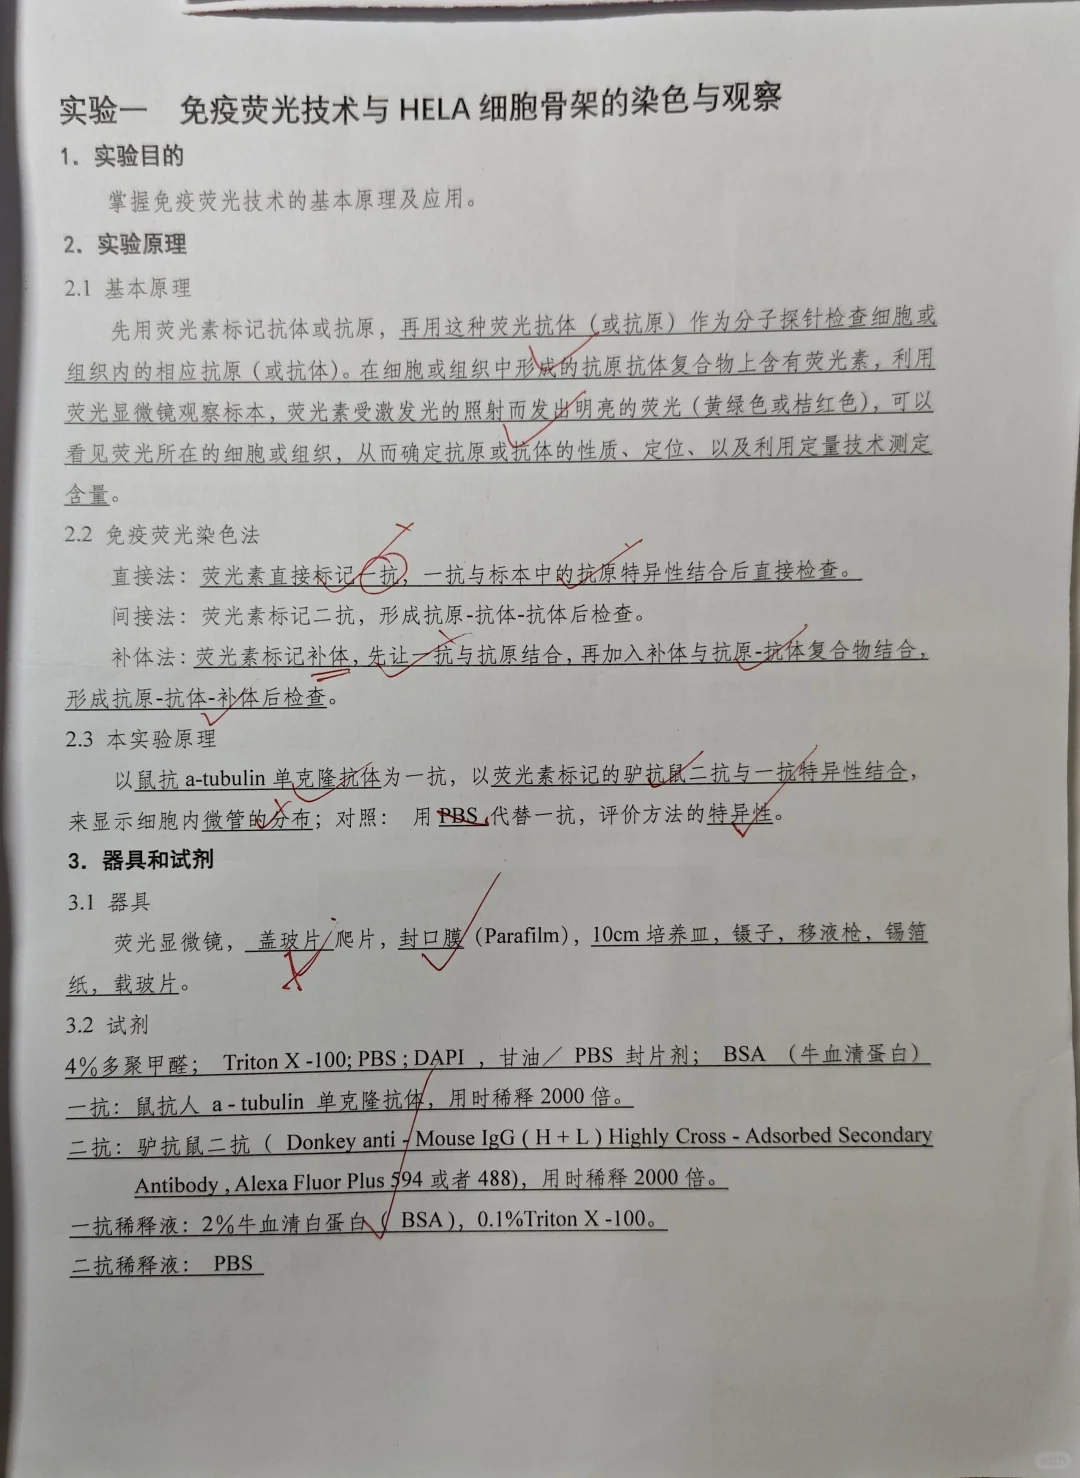 实验一 免疫荧光技术与 HELA 细胞骨架的染色与观察
1. 实验目的
掌握免疫荧光技术的基本原理及应用。
2. 实验原理
2.1 基本原理
先用荧光素标记抗体或抗原，再用这种荧光抗体（或抗原）作为分子探针检查细胞或
组织内的相应抗原（或抗体）。在细胞或组织中形成的抗原抗体复合物上含有荧光素，利用
荧光显微镜观察标本，荧光素受激发光的照射而发出明亮的荧光（黄绿色或桔红色），可以
看见荧光所在的细胞或组织，从而确定抗原或抗体的性质、定位、以及利用定量技术测定
含量。
2.2 免疫荧光染色法
直接法：荧光素直接标记一抗，一抗与标本中的抗原特异性结合后直接检查。
间接法：荧光素标记二抗，形成抗原-抗体-抗体后检查。
补体法：荧光素标记补体，先让一抗与抗原结合，再加入补体与抗原-抗体复合物结合，
形成抗原-抗体-补体后检查。
2.3 本实验原理
以鼠抗 a-tubulin 单克隆抗体为一抗，以荧光素标记的驴抗鼠二抗与一抗特异性结合，
来显示细胞内微管的分布；对照： 用 PBS 代替一抗，评价方法的特异性。
3. 器具和试剂
3.1 器具
荧光显微镜， 盖玻片 爬片，封口膜（Parafilm），10cm 培养皿，镊子，移液枪，锡箔
纸，载玻片。
3.2 试剂
4%多聚甲醛； Triton X -100; PBS ; DAPI ，甘油／ PBS 封片剂； BSA （牛血清蛋白）
一抗：鼠抗人 a - tubulin 单克隆抗体，用时稀释 2000 倍。
二抗：驴抗鼠二抗（ Donkey anti - Mouse IgG ( H + L ) Highly Cross - Adsorbed Secondary
Antibody , Alexa Fluor Plus 594 或者 488)，用时稀释 2000 倍。
一抗稀释液：2%牛血清白蛋白（ BSA ），0.1%Triton X -100。
二抗稀释液： PBS
小红书